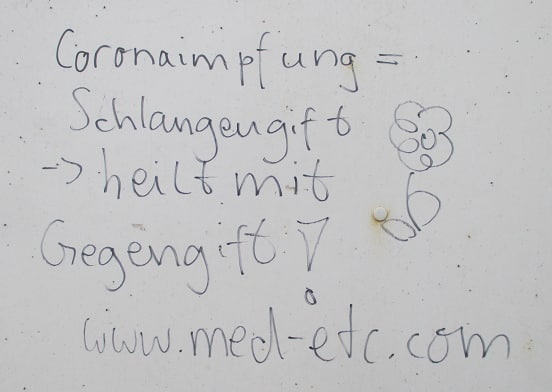 Coronaimpfung =
Schlangengift
-> heilt mit
Gegengift!
www.med-etc.com